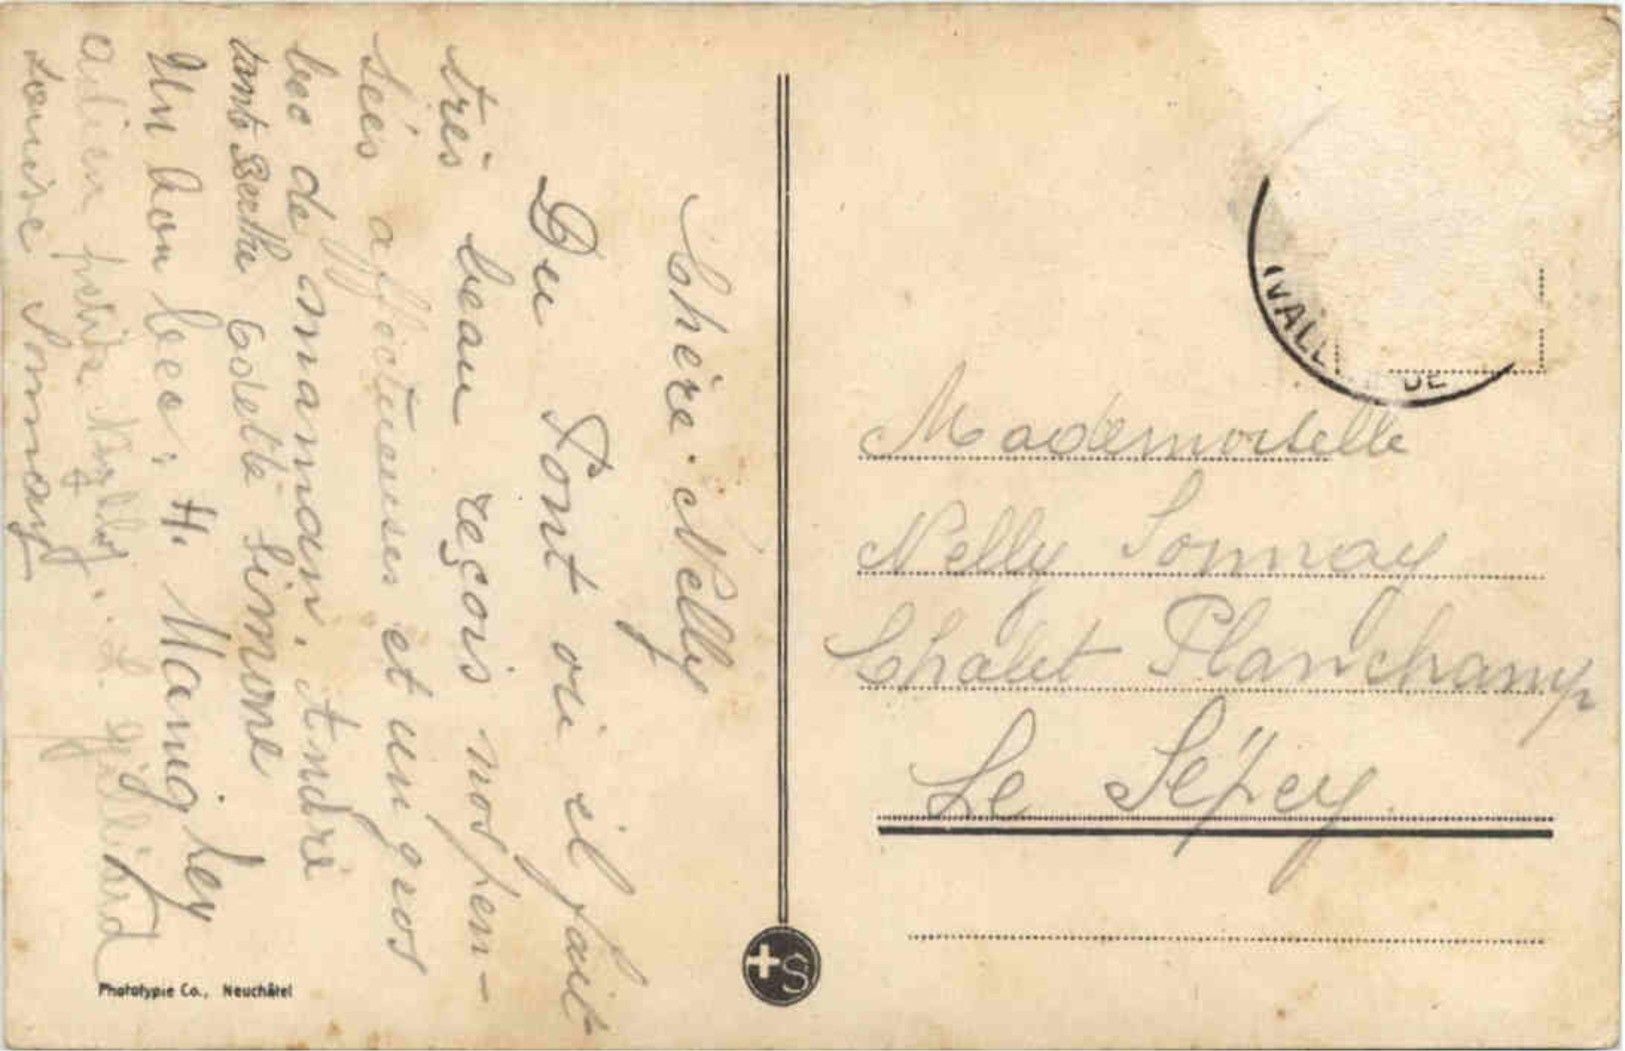 Chère Nelly
Du Pont où il fait
très beau reçois nos pen-
sées affectueuses et un gros
bec de maman. André
tante Berthe Odette Simone
Un bon bec. H.
petite Nelly. L.
Louise Sonnay
Mademoiselle
Nelly Sonnay
Chalet Planchamp
Le Sépey
(VALL DE
Phototypie Co., Neuchâtel
+S